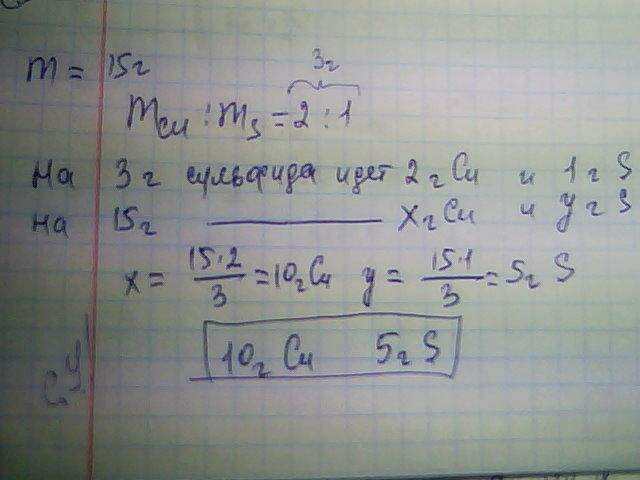 3г
m = 15г
mCu : mS = 2 : 1
На 3г сульфида идет 2г Cu и 1г S
на 15г ———— xг Cu и yг S
x = 15·2/3 = 10г Cu y = 15·1/3 = 5г S
10г Cu 5г S